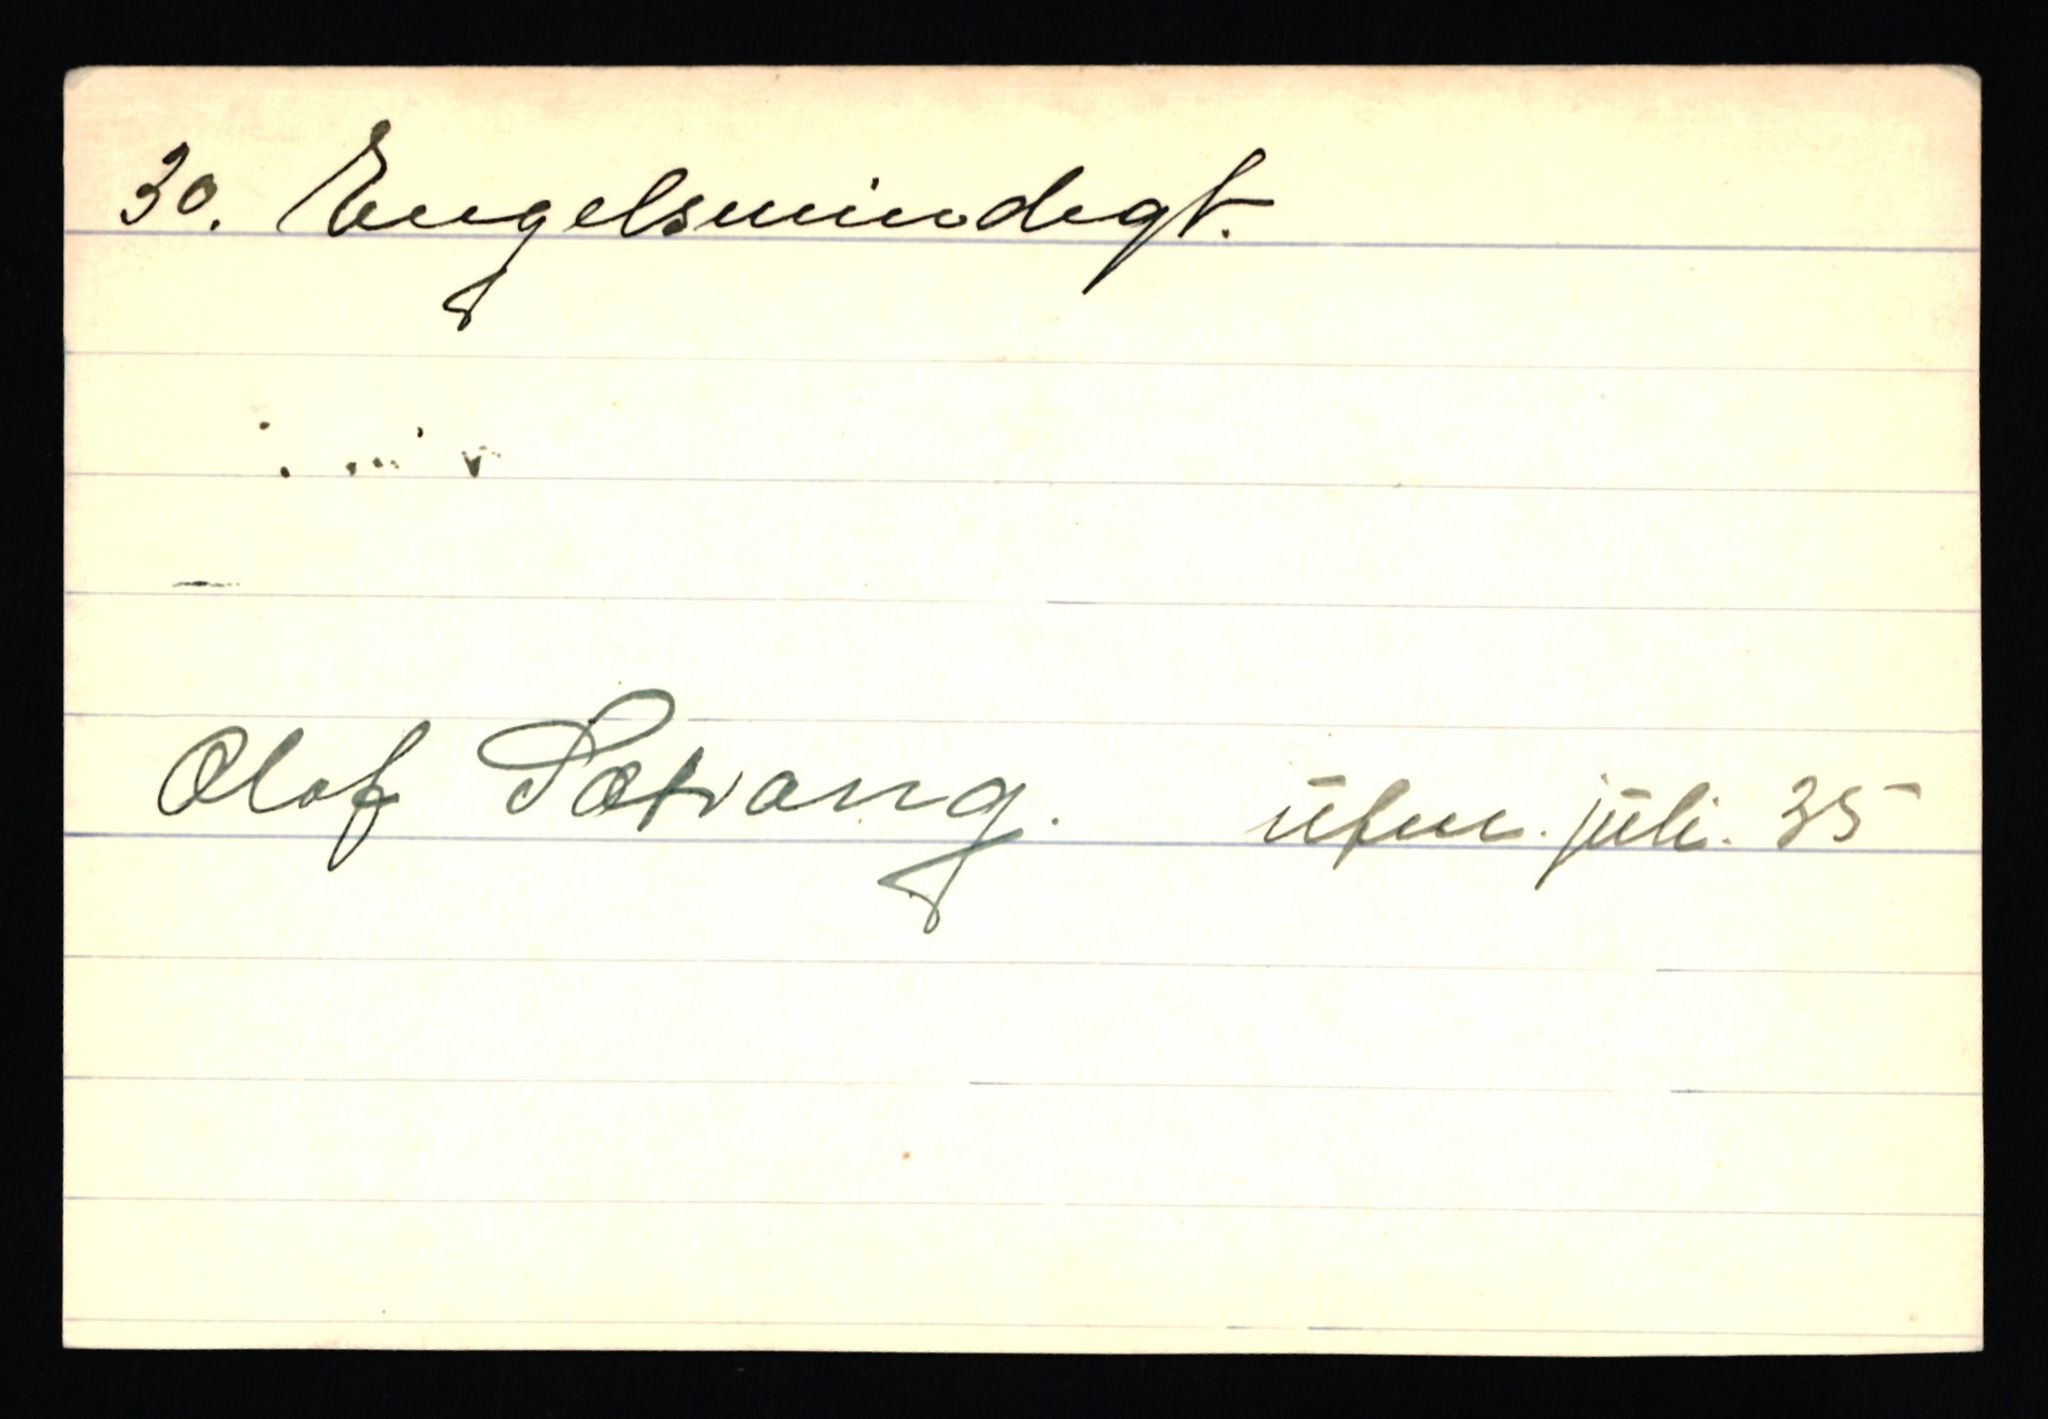 30. Engelsmindegt.
Olof Sætrang. ūtm. jūli. 35